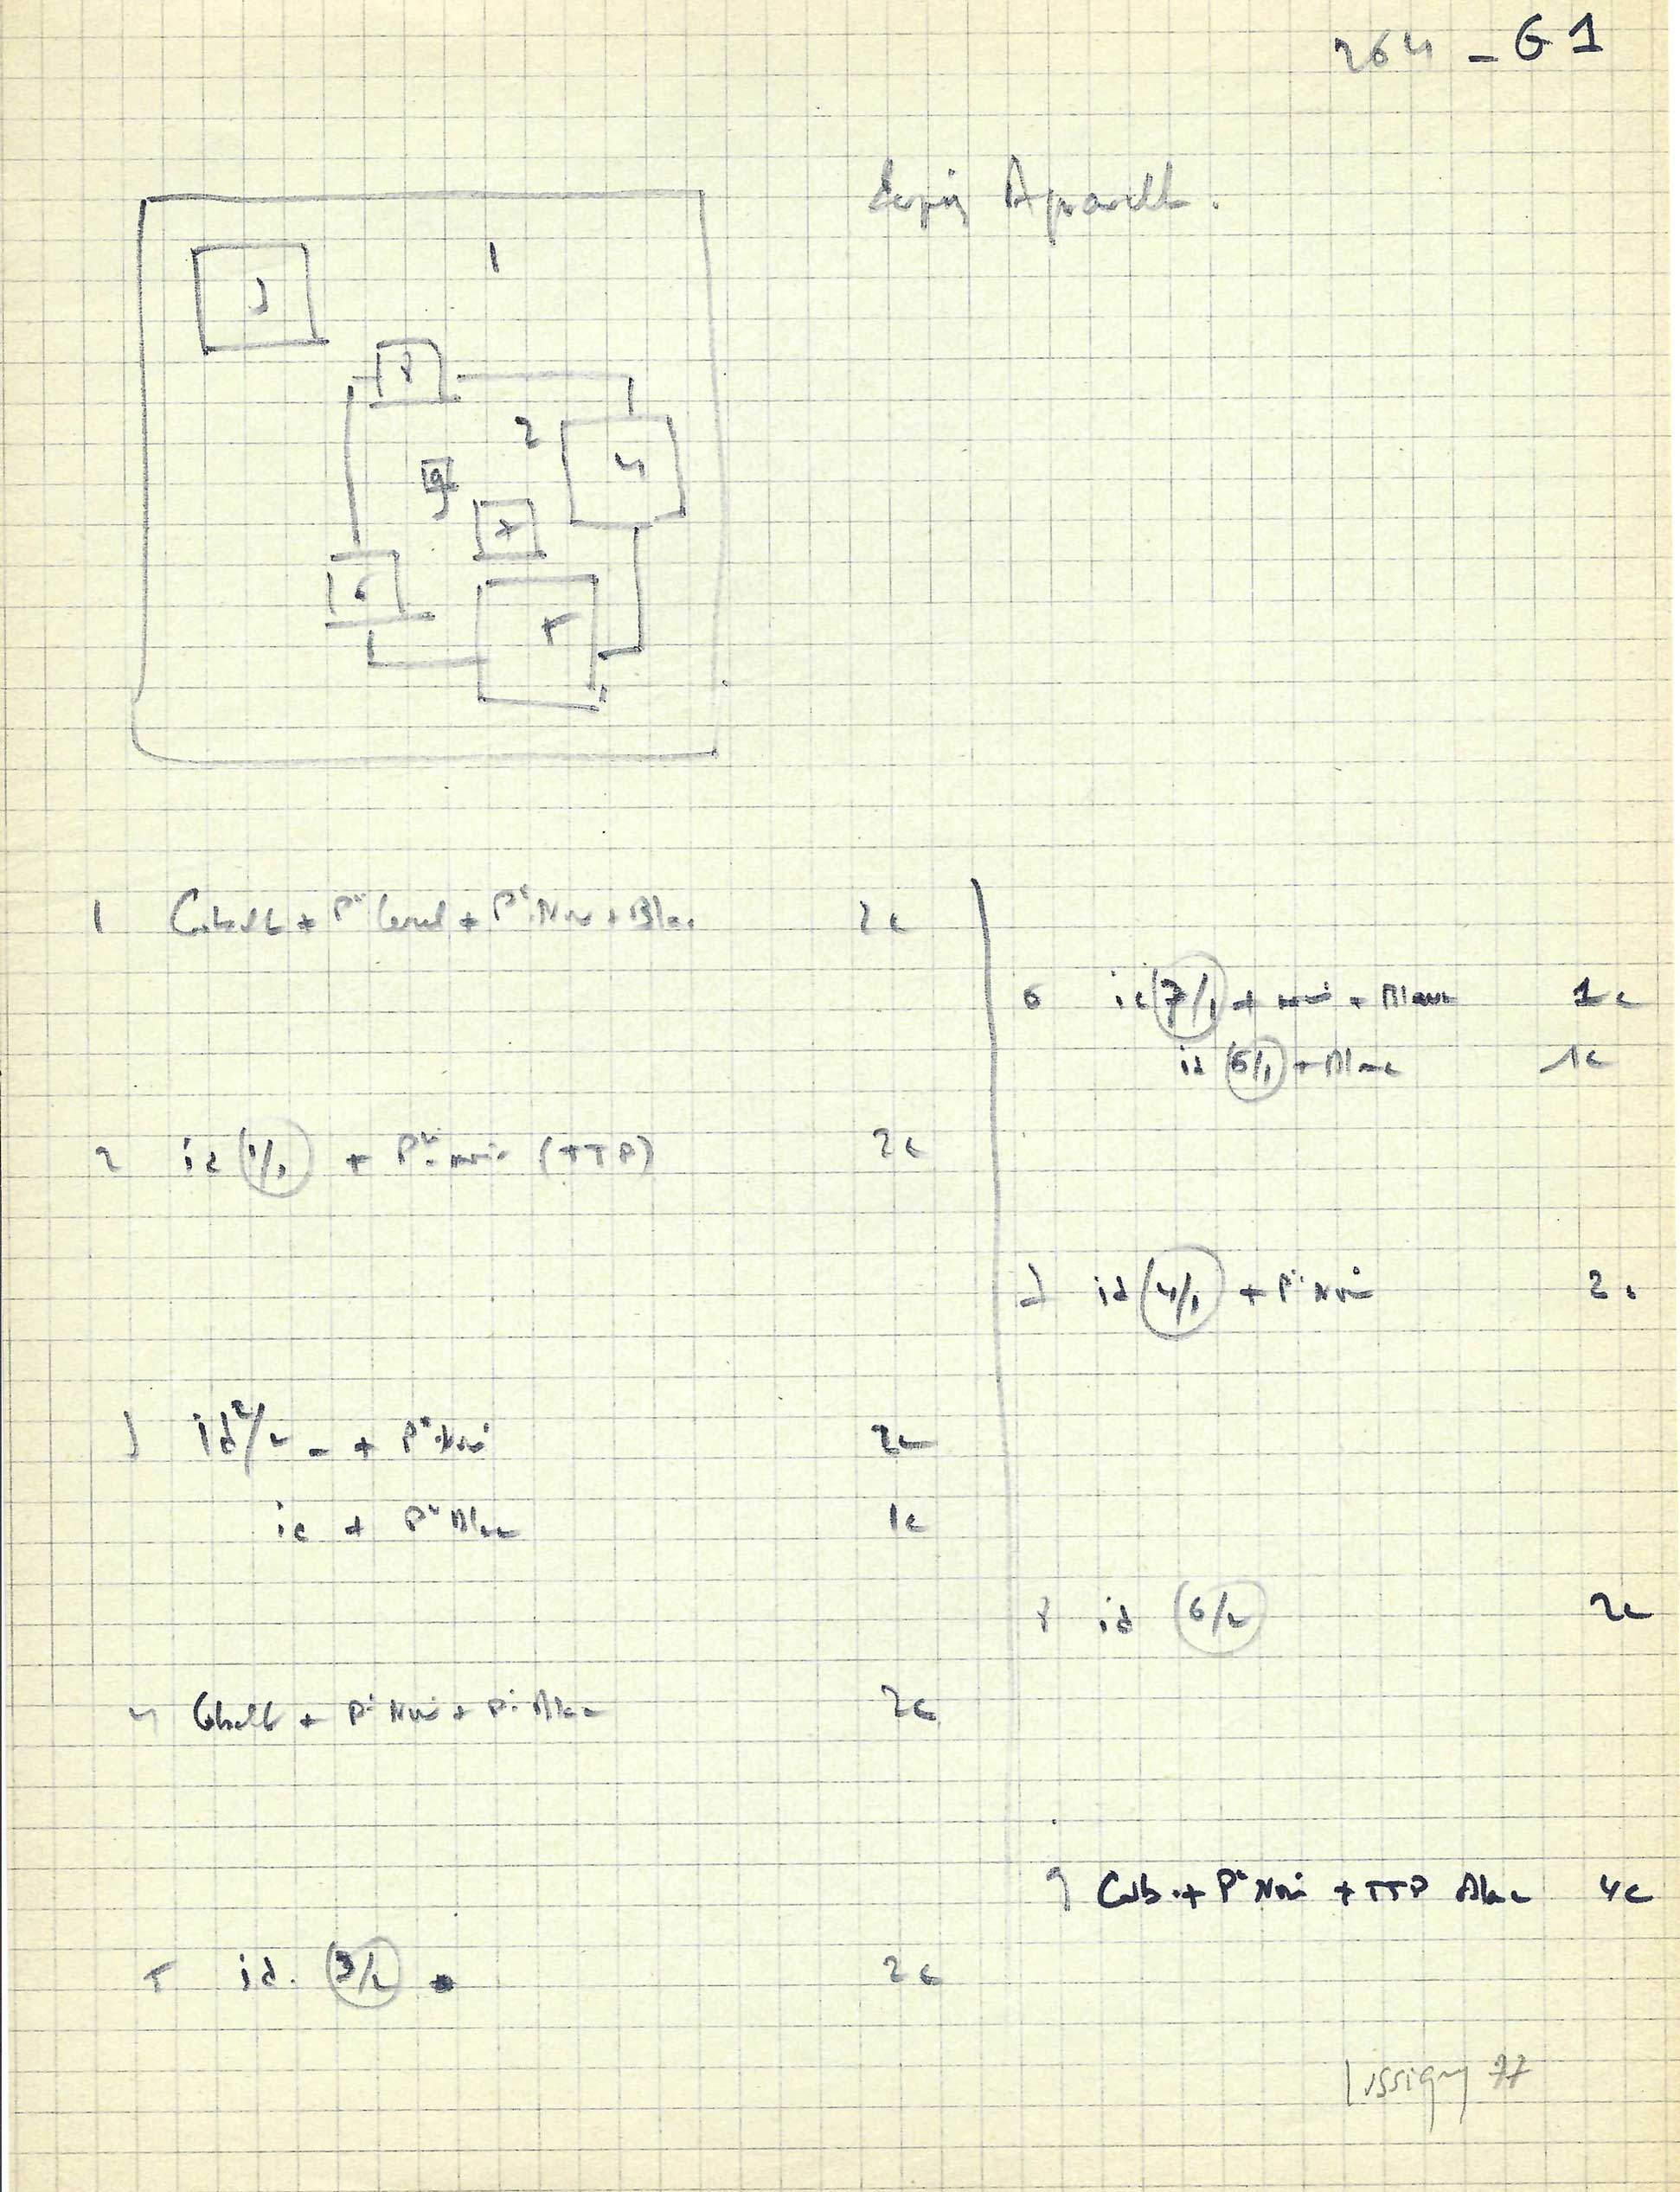 264 - G1
1
3
8
2
4
9
7
6
5
1 Cobalt + Pt Cerul + Pt Noir + Blanc 2c
2 id 1/1 + Pt noir (TTP) 2c
3 id 2/2 - + Pt Noir 2c
id + Pt Blanc 1c
4 Cobalt + Pt Noir + Pt Blanc 2c
5 id. 3/2 2c
6 id 7/1 + noir + Blanc 1c
id 6/1 + Blanc 1c
id 4/1 + Pt Noir 2c
8 id 6/2 2c
9 Cob. + Pt Noir + TTP Blanc 4c
Lissigny 77